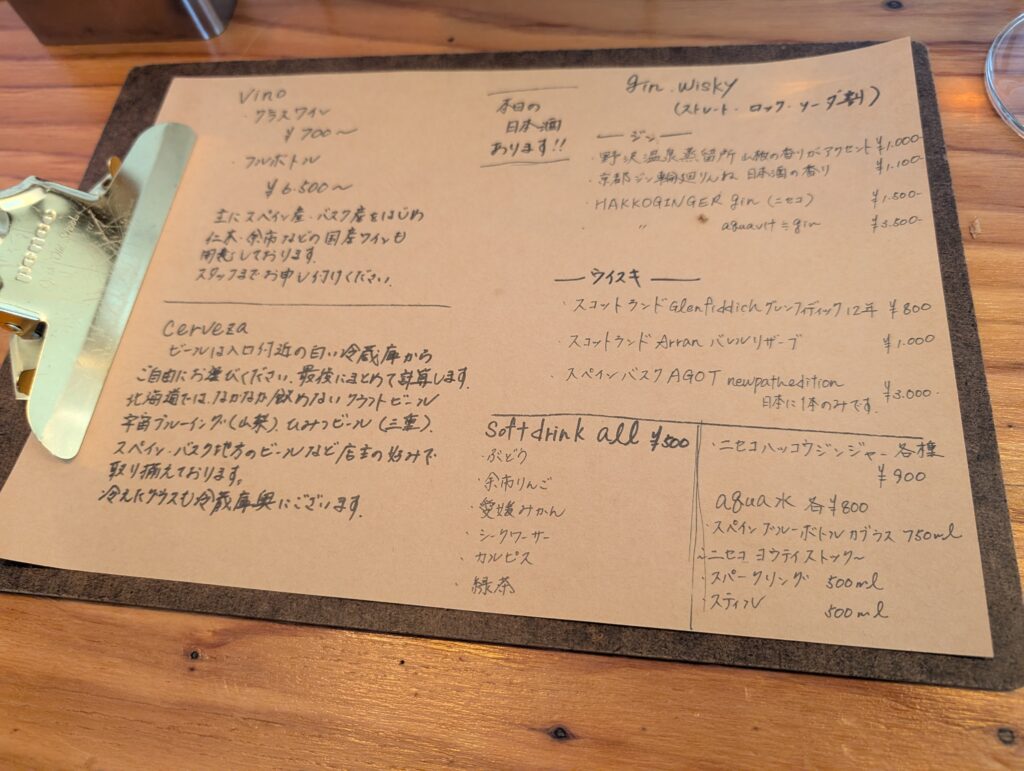 Vino
・グラスワイン
¥700〜
・フルボトル
¥6.500〜
主にスペイン産・バスク産をはじめ
仁木・余市などの国産ワインも
用意しております。
スタッフまでお申し付けください。
Cerveza
ビールは入口付近の白い冷蔵庫から
ご自由にお選びください。最後にまとめて計算します。
北海道ではなかなか飲めないクラフトビール
宇宙ブルーイング(山梨)、ひみつビール(三重)、
スペイン・バスク地方のビールなど店主の好みで
取り揃えております。
冷えたグラスも冷蔵庫奥にございます。
本日の
日本酒
あります!!
gin.wisky
(ストレート・ロック・ソーダ割)
ジン
・野沢温泉蒸留所 山椒の香りがアクセント ¥1.000-
・京都ジン輪廻りんね 日本酒の香り ¥1.100-
・HAKKOGINGER gin (ニセコ) ¥1.500-
・ 〃 aquavit≒gin ¥3.500-
ウイスキー
・スコットランド Glenfiddich グレンフィディック12年 ¥800
・スコットランド Arran バレルリザーブ ¥1.000
・スペインバスク AGOT newpathedition
日本に1本のみです。 ¥3.000-
Soft drink all ¥500
・ぶどう
・余市りんご
・愛媛みかん
・シークワーサー
・カルピス
・緑茶
・ニセコハッコウジンジャー 各種
¥900
agua水 各¥800
・スペイン ブルーボトル カブラス 750ml
ニセコ ヨウテイストック
・スパークリング 500ml
・スティル 500ml
penco